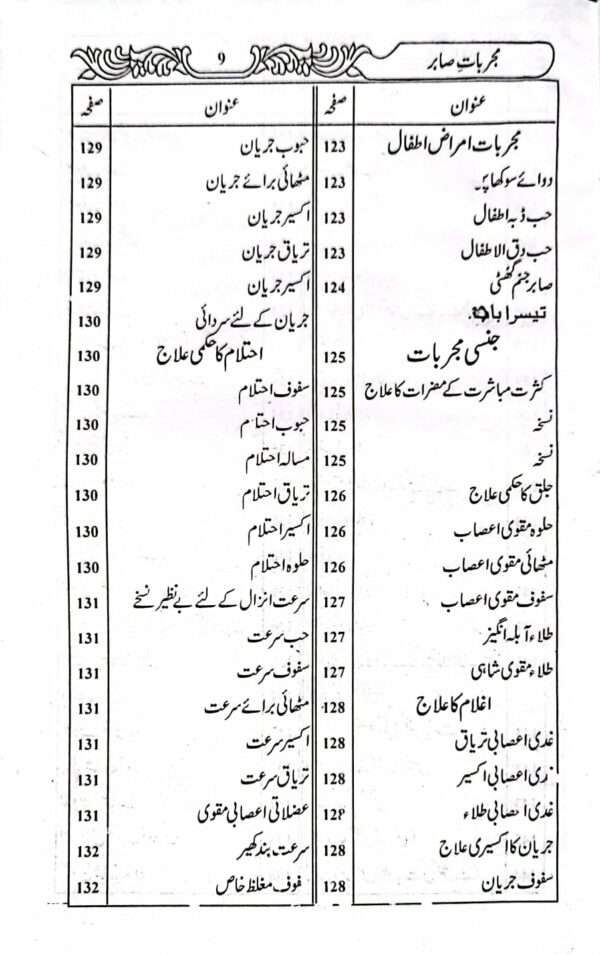 مجربات صابر
9
عنوان صفحہ
مجربات امراض اطفال 123
دوائے سوکھا پن۔ 123
حب ڈبہ اطفال 123
حب دق الاطفال 123
صابر جنم گھٹی 124
تیسرا باب۔
جنسی مجربات 125
کثرت مباشرت کے مضرات کا علاج 125
نسخہ 125
نسخہ 125
جلق کا حکمی علاج 126
حلوہ مقوی اعصاب 126
مٹھائی مقوی اعصاب 126
سفوف مقوی اعصاب 127
طلاء آبلہ انگیز 127
طلاء مقوی شاہی 127
اغلام کا علاج 128
غدی اعصابی تریاق 128
غدی اعصابی اکسیر 128
غدی اعصابی طلاء 128
جریان کا اکسیری علاج 128
سفوف جریان 128
عنوان صفحہ
حبوب جریان 129
مٹھائی برائے جریان 129
اکسیر جریان 129
تریاق جریان 129
اکسیر جریان 129
جریان کے لئے سردائی 130
احتلام کا حکمی علاج 130
سفوف احتلام 130
حبوب احتلام 130
مسالہ احتلام 130
تریاق احتلام 130
اکسیر احتلام 130
حلوہ احتلام 130
سرعت انزال کے لئے بے نظیر نسخے 131
حب سرعت 131
سفوف سرعت 131
مٹھائی برائے سرعت 131
اکسیر سرعت 131
تریاق سرعت 131
عضلاتی اعصابی مقوی 131
سرعت بند کھیر 132
فوف مغلظ خاص 132